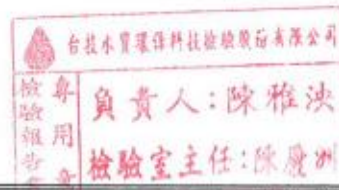 台技水質環保科技檢驗股份有限公司
檢驗報告專用章
負責人:陳雅泱
檢驗室主任:陳慶洲